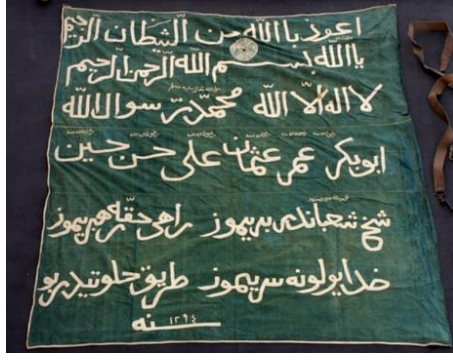 اعوذ باالله من الشيطان الرجيم
ياالله بسم الله الرحمن الرحيم
لا اله الا الله محمد رسوالالله
ابوبكر عمر عثمان على حسن حسين
شيخ شعباندى بريموز راهى حقه رهبريموز
خدايولونه سريموز طريق خلوتيدر بو
سنه ١٢٩٤